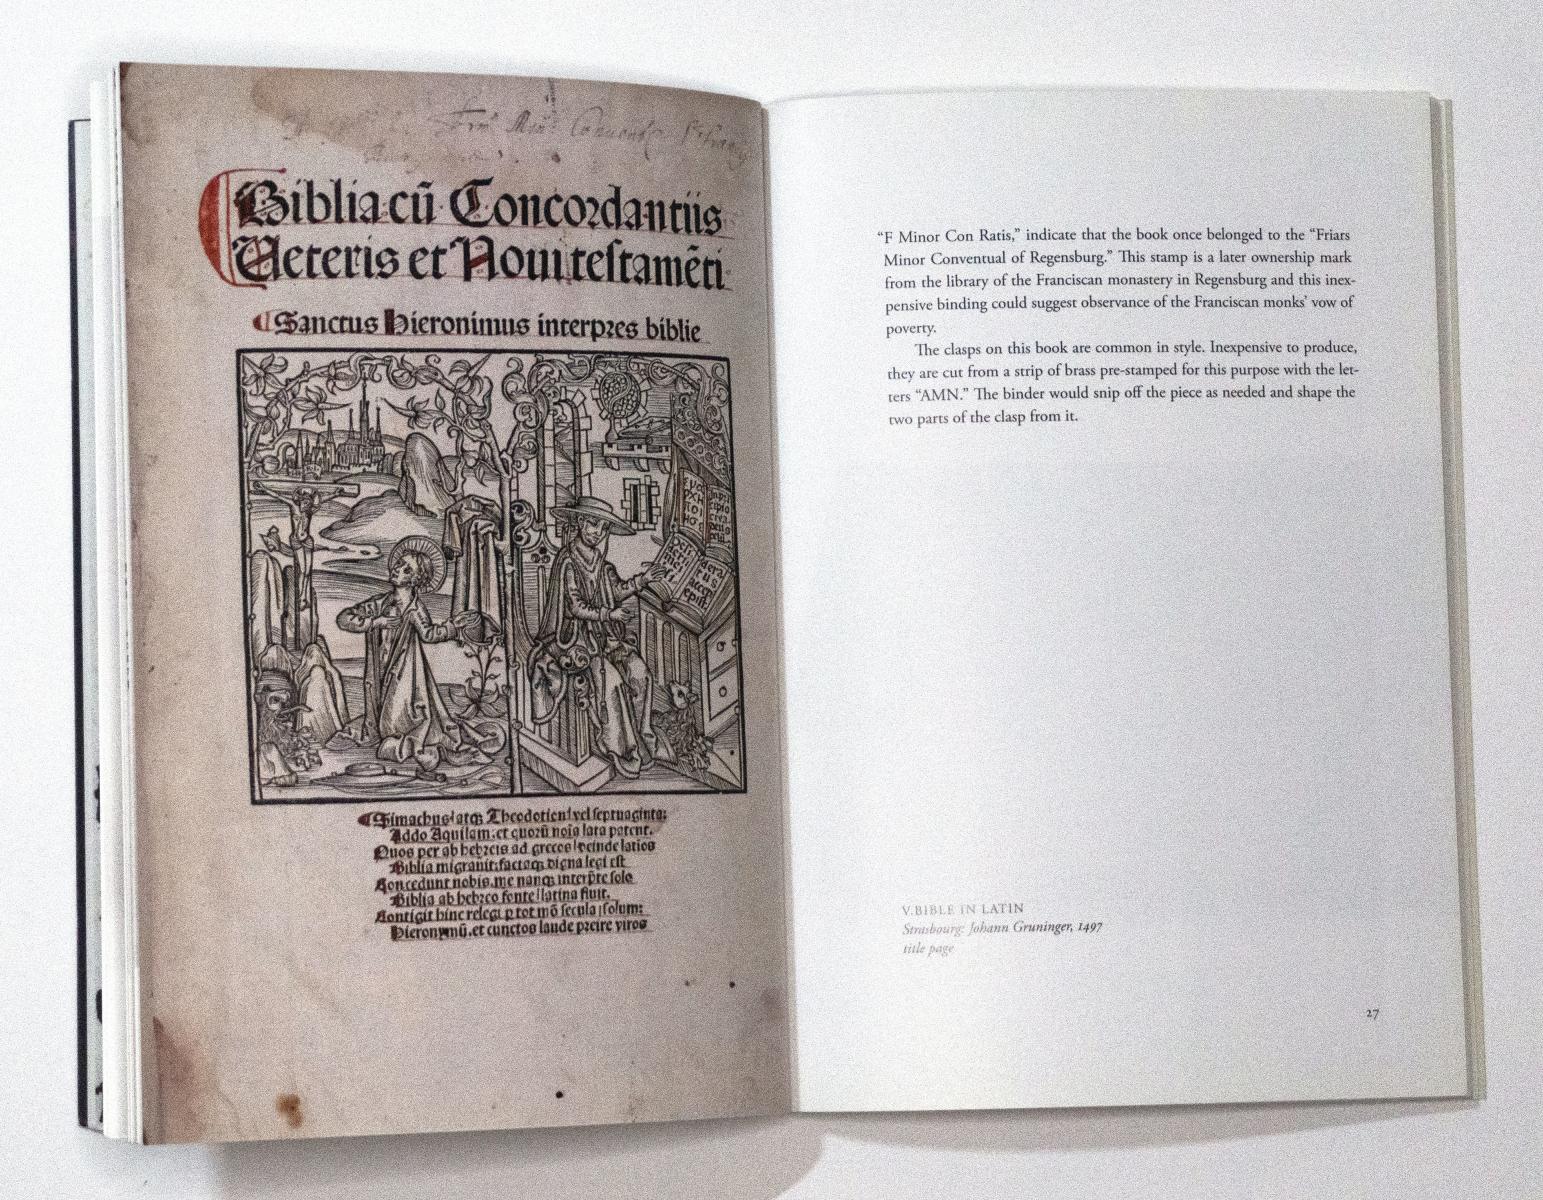 Frm Min Conventus
Biblia cũ Concordantiis
Veteris et Noui testamẽti
Sanctus Hieronimus interpres biblie
Simachus atqꝫ Theodotion vel septuaginta:
Addo Aquilam: et quorũ noĩa lata patent.
Quos per ab hebreis ad grecos deinde latios
Biblia migrarit: factaqꝫ digna legi est
Concedunt nobis. me nanqꝫ interprete solo
Biblia ab hebreo fonte latina fluit.
Contigit hinc relegi ꝑ tot mõ secula solum:
Hieronymũ. et cunctos laude preire viros
“F Minor Con Ratis,” indicate that the book once belonged to the “Friars
Minor Conventual of Regensburg.” This stamp is a later ownership mark
from the library of the Franciscan monastery in Regensburg and this inex-
pensive binding could suggest observance of the Franciscan monks’ vow of
poverty.
The clasps on this book are common in style. Inexpensive to produce,
they are cut from a strip of brass pre-stamped for this purpose with the let-
ters “AMN.” The binder would snip off the piece as needed and shape the
two parts of the clasp from it.
V.BIBLE IN LATIN
Strasbourg: Johann Gruninger, 1497
title page
27